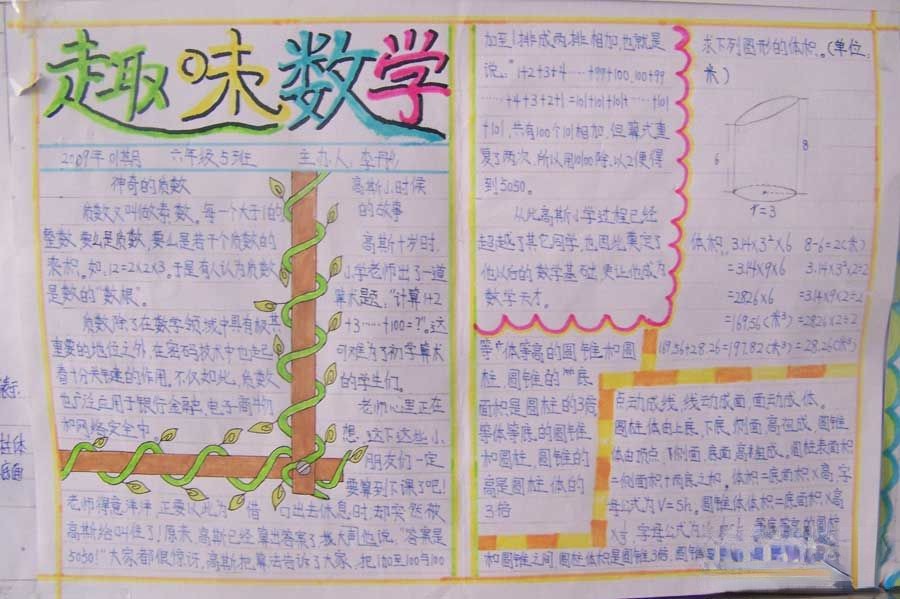 趣味数学
2009年01期 六年级5班 主办人:李
神奇的质数
质数又叫做素数。每一个大于1的
整数,要么是质数,要么是若干个质数的
乘积。如:12=2×2×3。于是有人认为质数
是数的“数根”。
质数除了在数学领域中具有极其
重要的地位之外,在密码技术中也起
着十分关键的作用。不仅如此,质数
也广泛应用于银行金融,电子商物
和网络安全中。
高斯小时候
的故事
高斯十岁时,
小学老师出了一道
算术题:“计算1+2
+3……+100=?”。这
可难为了初学算术
的学生们。
老师心里正在
想,这下这些小
朋友们一定
要算到下课了吧!
老师得意洋洋,正要以此为借口出去休息时,却突然被
高斯给叫住了!原来,高斯已经算出答案了,挨大同他说:“答案是
5050!”大家都很惊讶,高斯把算法告诉了大家,把1加至100与100
加至1排成两排相加,也就是
说:“1+2+3+4……+99+100,100+99
……+4+3+2+1=101+101+101+……+101
+101,共有100个101相加,但算式重
复了两次,所以用10100除以2便得
到5050。
从此高斯小学过程已经
超越了其它同学,也因此奠定了
他以后的数学基础,更让他成为
数学天才。
求下列图形的体积。(单位:
米)
6
8
r=3
体积:3.14×3²×6 8-6=2(米)
=3.14×9×6 3.14×3²×2÷2
=28.26×6 =3.14×9×2÷2
=169.56(米³) =28.26×2÷2
169.56+28.26=197.82(米³) =28.26(米³)
等体等高的圆锥和圆
柱,圆锥的底
面积是圆柱的3倍
等体等底的圆锥
和圆柱,圆锥的
高是圆柱体的
3倍
点动成线,线动成面,面动成体。
圆柱体由上底、下底、侧面、高组成,圆锥
体由顶点、侧面、底面、高组成。圆柱表面积
=侧面积+两底之和。体积=底面积×高,字
母公式为V=Sh。圆锥体体积=底面积×高
×⅓,字母公式为
和圆锥之间,圆柱体积是圆锥3倍,圆锥